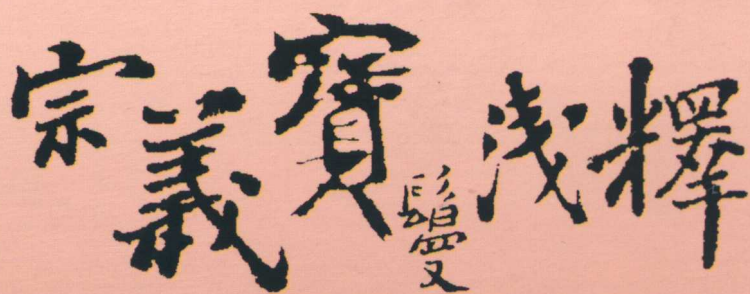 宗義寶鬘浅釋